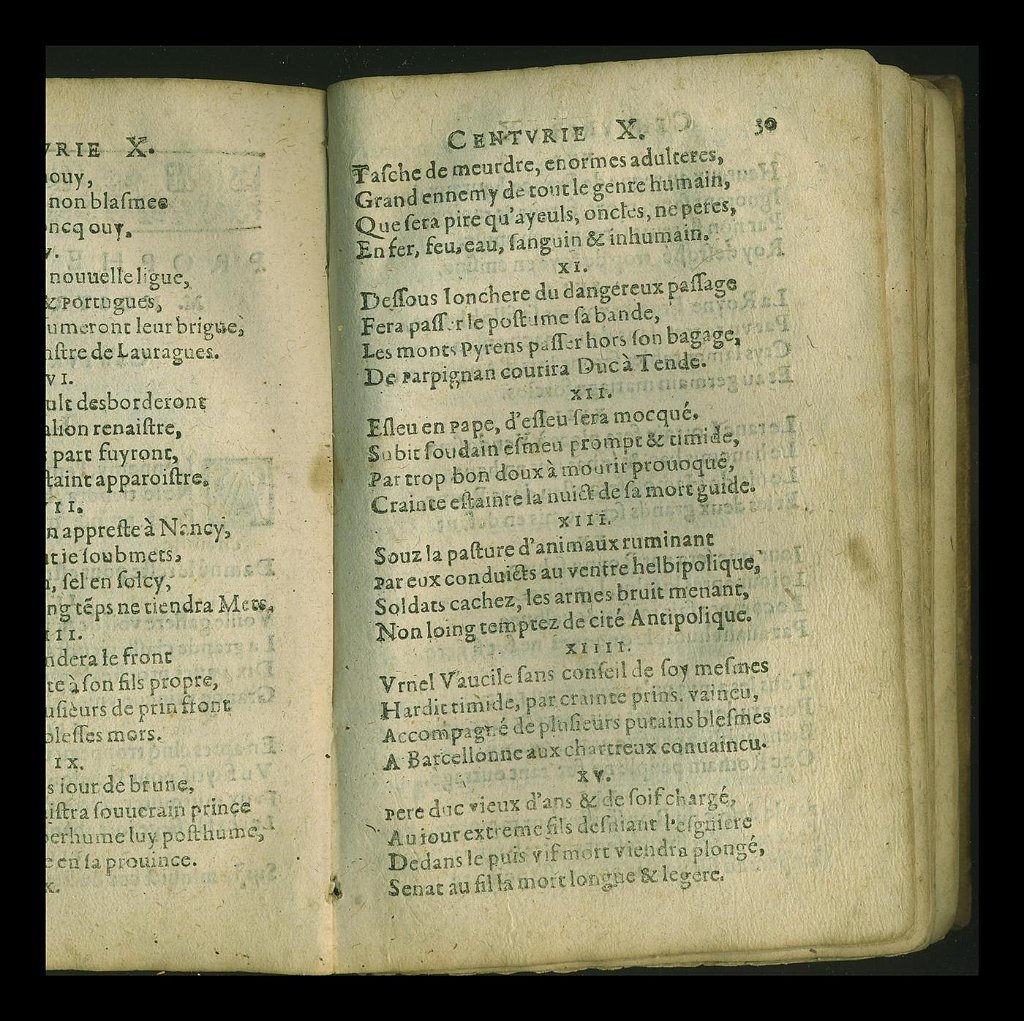 VRIE X.
ouy,
non blasmee
oncq ouy.
V.
nouuelle ligue,
& Portugues,
umeront leur brigue,
stre de Lauragues.
VI.
ult desborderont
alion renaistre,
part fuyront,
taint apparoistre.
VII.
n appreste à Nancy,
tie soubmets,
, sel en solcy,
ng tẽps ne tiendra Mets.
III.
ndera le front
te à son fils propre,
usieurs de prin front
blesses mors.
IX.
s iour de brune,
istra souuerain prince
perhume luy posthume,
e en sa prouince.
X.
CENTVRIE X. 30
Tasche de meurdre, enormes adulteres,
Grand ennemy de tout le genre humain,
Que sera pire qu'ayeuls, oncles, ne peres,
En fer, feu, eau, sanguin & inhumain.
XI.
Dessous Ionchere du dangereux passage
Fera passer le postume sa bande,
Les monts Pyrens passer hors son bagage,
De Parpignan courira Duc à Tende.
XII.
Esleu en Pape, d'esleu sera mocqué,
Subit soudain esmeu prompt & timide,
Par trop bon doux à mourir prouoqué,
Crainte estainte la nuict de sa mort guide.
XIII.
Souz la pasture d'animaux ruminant
Par eux conduicts au ventre helbipolique,
Soldats cachez, les armes bruit menant,
Non loing temptez de cité Antipolique.
XIIII.
Vrnel Vaucile sans conseil de soy mesmes
Hardit timide, par crainte prins, vaincu,
Accompagné de plusieurs putains blesmes
A Barcellonne aux chartreux conuaincu.
XV.
Pere duc vieux d'ans & de soif chargé,
Au iour extreme fils desniant l'esguiere
Dedans le puis vif mort viendra plongé,
Senat au fil la mort longue & legere.